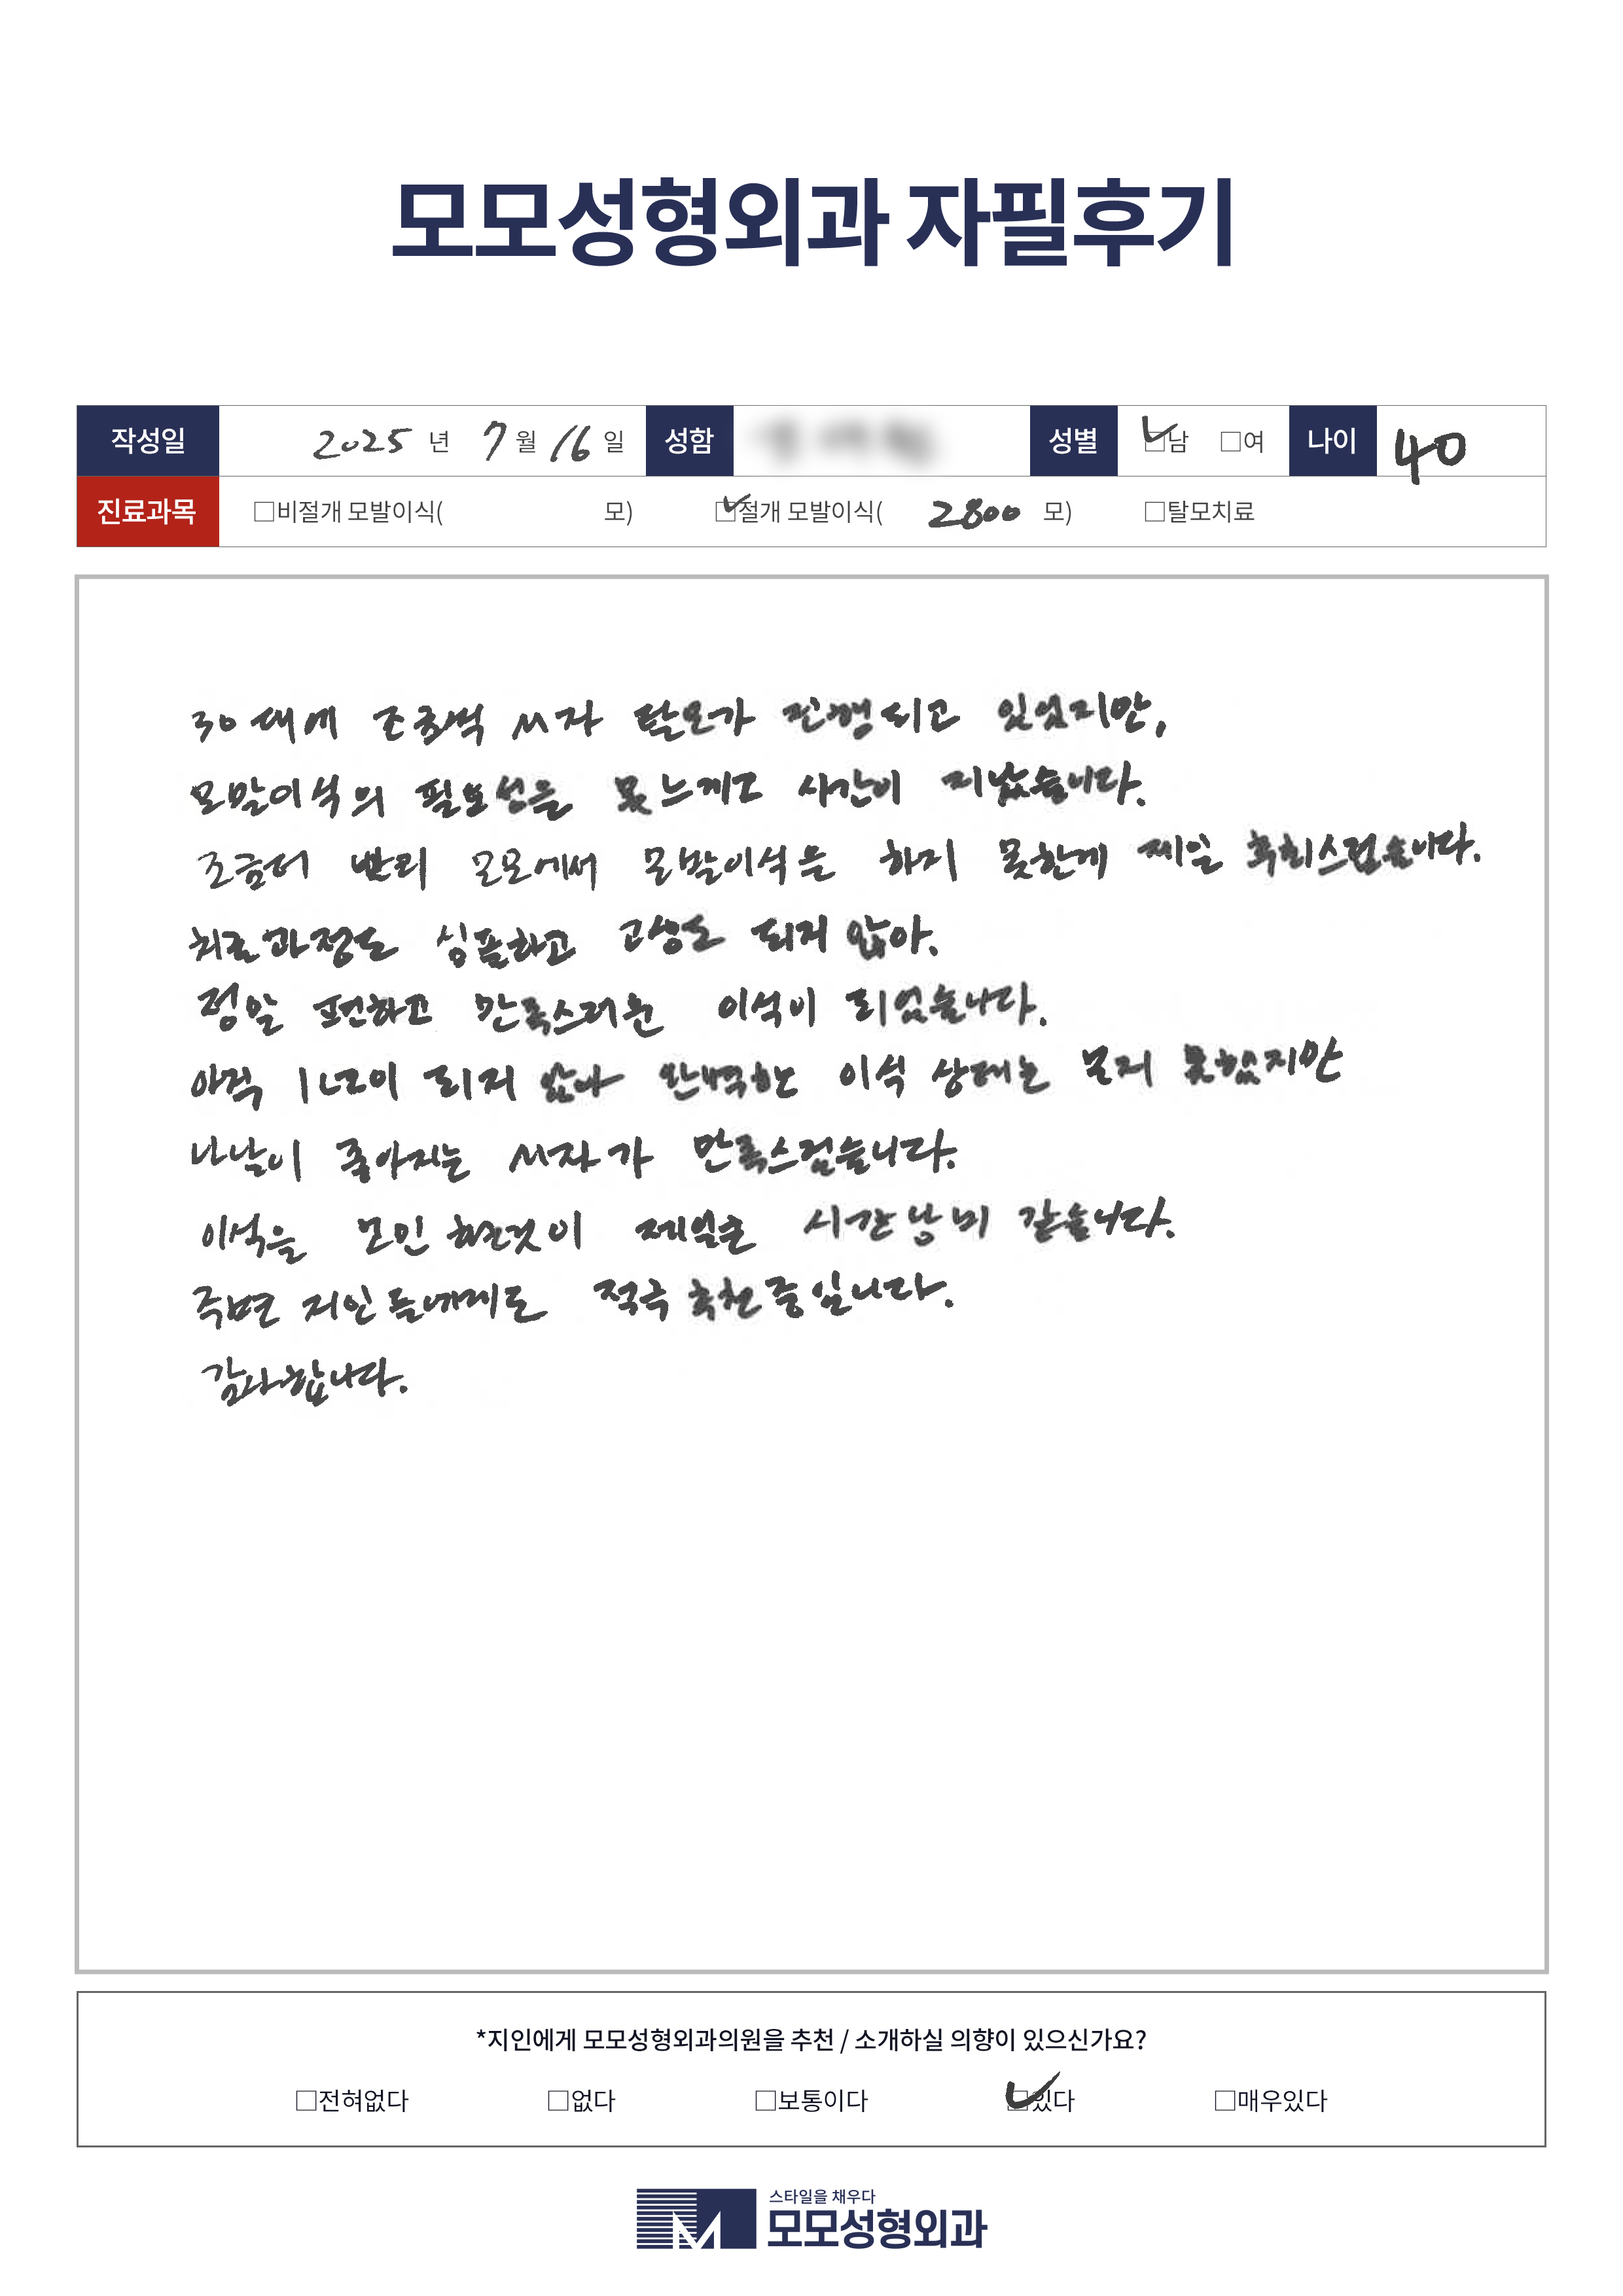 모모성형외과 자필후기
작성일 2025 년 7 월 16 일 성함 성별 ☑남 □여 나이 40
진료과목 □비절개 모발이식( 모) ☑절개 모발이식( 2800 모) □탈모치료
30대에 조금씩 M자 탈모가 진행되고 있었지만,
모발이식의 필요성을 못느끼고 시간이 지났습니다.
조금더 빨리 모모에서 모발이식을 하지 못한게 제일 후회스럽습니다.
치료과정도 심플하고 고생도 되지 않아.
정말 편하고 만족스러운 이식이 되었습니다.
아직 1년이 되지 않아 완벽한 이식 상태는 보지 못했지만
나날이 좋아지는 M자가 만족스럽습니다.
이식을 고민 한것이 제일큰 시간낭비 같습니다.
주변 지인들에게도 적극 추천중입니다.
감사합니다.
*지인에게 모모성형외과의원을 추천 / 소개하실 의향이 있으신가요?
□전혀없다 □없다 □보통이다 ☑있다 □매우있다
스타일을 채우다
모모성형외과